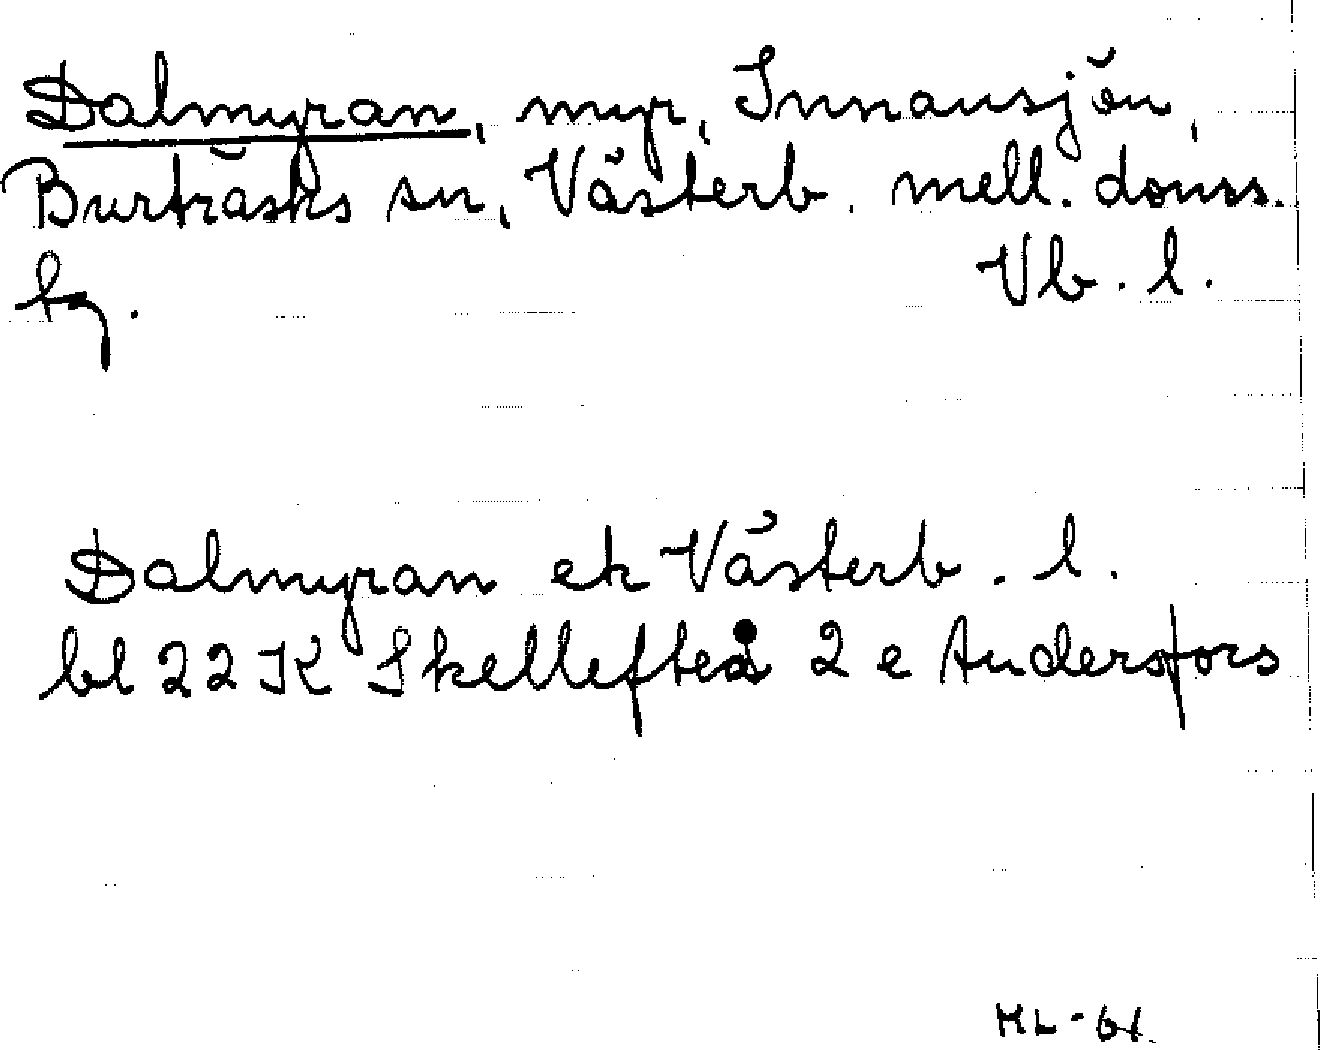 Dalmyran, myr, Innansjön,
Burträsks sn, Västerb. mell. donss.
by. Vb. l.
Dalmyran ek Västerb. l.
bl 22 K Skellefteå 2 e Andersfors
ML-61.